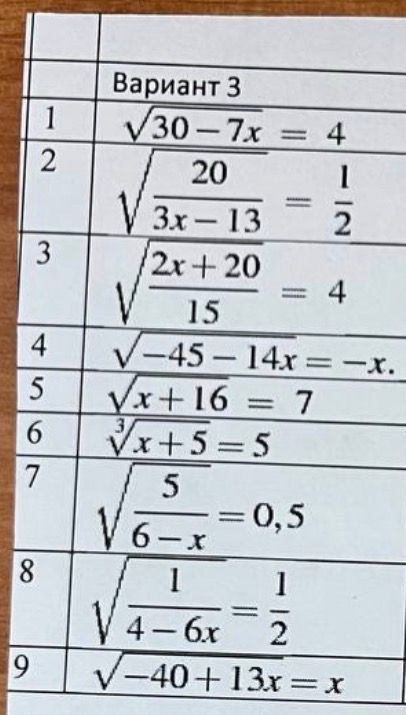 Вариант 3
1 √(30 − 7x) = 4
2 √(20/(3x − 13)) = 1/2
3 √((2x + 20)/15) = 4
4 √(−45 − 14x) = −x.
5 √(x + 16) = 7
6 ∛(x + 5) = 5
7 √(5/(6 − x)) = 0,5
8 √(1/(4 − 6x)) = 1/2
9 √(−40 + 13x) = x